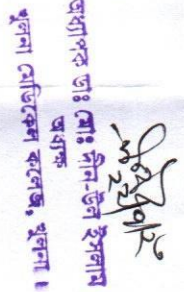 অধ্যাপক ডাঃ মোঃ দীন-উল ইসলাম
অধ্যক্ষ
খুলনা মেডিকেল কলেজ, খুলনা ।